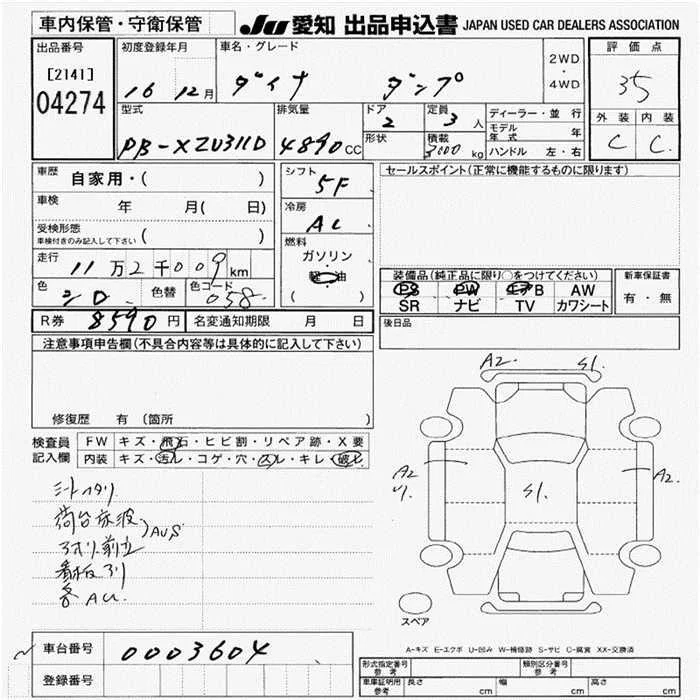 車内保管・守衛保管
JU 愛知 出品申込書 JAPAN USED CAR DEALERS ASSOCIATION
出品番号
[2141]
04274
初度登録年月
16 12月
車名・グレード
ダイナ ダンプ
2WD
・
4WD
評価点
35
外装 内装
C C
型式
PB-XZU311D
排気量
4890 CC
ドア
2
定員
3 人
形状
積載
3000 kg
ディーラー・並行
モデル年式 年
ハンドル 左・右
車歴 自家用・( )
車検 年 月( 日)
受検形態
車検付きのみ記入して下さい ( )
走行 11万2千009km
色 色替 色コード 058
シフト
5F
冷房
AC
燃料
ガソリン
軽油
( )
セールスポイント(正常に機能するものに限ります)
装備品(純正品に限り○をつけてください)
PS PW エアB AW
SR ナビ TV カワシート
新車保証書
有・無
R券 8590円 名変通知期限 月 日
後日品
注意事項申告欄(不具合内容等は具体的に記入して下さい)
修復歴 有 (箇所 )
検査員記入欄
FW キズ・飛石・ヒビ割・リペア跡・X要
内装 キズ・汚レ・コゲ・穴・スレ・キレ・破レ
荷台
A2. S1.
A2
S1.
A2.
スペア
A-キズ E-エクボ U-凹み W-補修跡 S-サビ C-腐食 XX-交換済
車台番号 0003604
登録番号
形式指定番号 参考
類別区分番号 参考
車庫証明用 参考 長さ cm 幅 cm 高さ cm